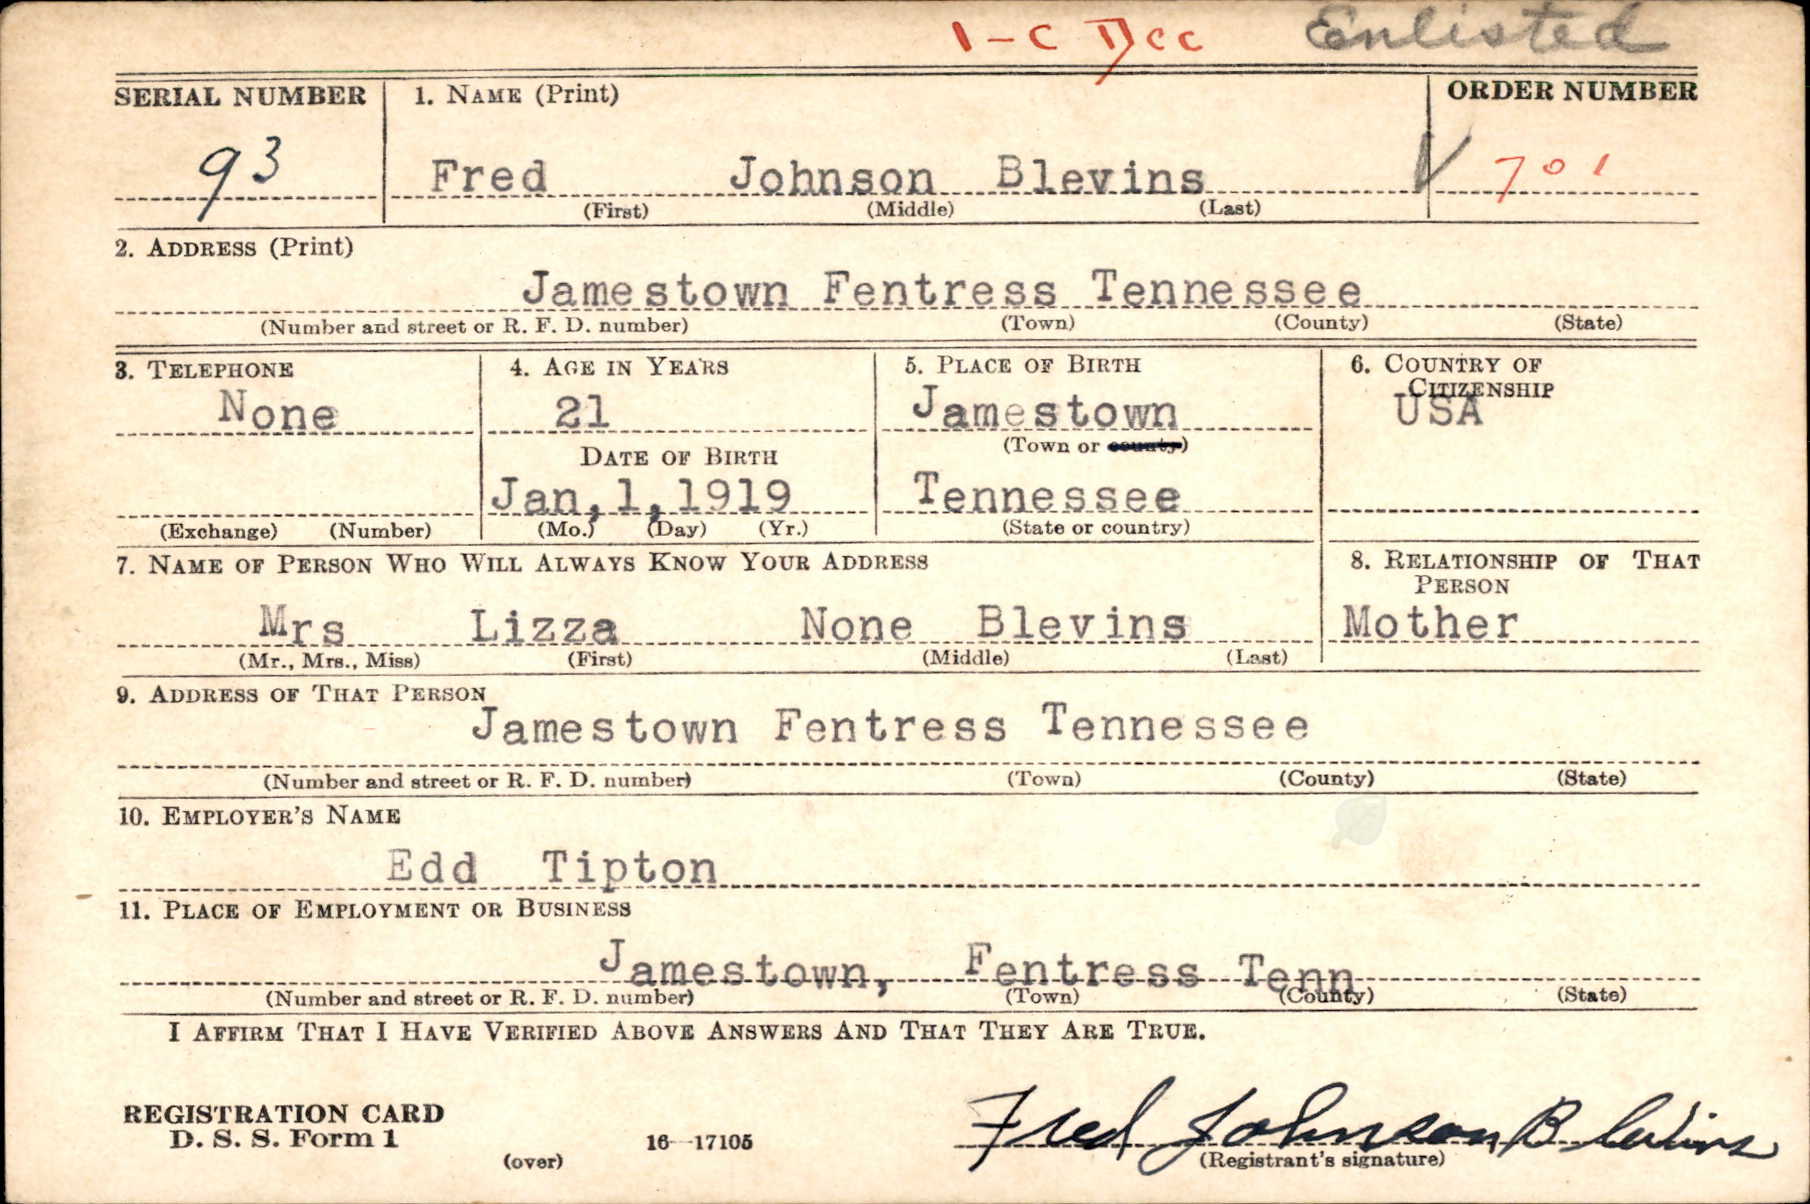 1-C Dcc Enlisted
SERIAL NUMBER 1. NAME (Print) ORDER NUMBER
93 Fred Johnson Blevins V 701
(First) (Middle) (Last)
2. ADDRESS (Print)
Jamestown Fentress Tennessee
(Number and street or R. F. D. number) (Town) (County) (State)
3. TELEPHONE 4. AGE IN YEARS 5. PLACE OF BIRTH 6. COUNTRY OF
CITIZENSHIP
None 21 Jamestown USA
(Town or county)
DATE OF BIRTH
Jan,1,1919 Tennessee
(Exchange) (Number) (Mo.) (Day) (Yr.) (State or country)
7. NAME OF PERSON WHO WILL ALWAYS KNOW YOUR ADDRESS 8. RELATIONSHIP OF THAT
PERSON
Mrs Lizza None Blevins Mother
(Mr., Mrs., Miss) (First) (Middle) (Last)
9. ADDRESS OF THAT PERSON
Jamestown Fentress Tennessee
(Number and street or R. F. D. number) (Town) (County) (State)
10. EMPLOYER'S NAME
Edd Tipton
11. PLACE OF EMPLOYMENT OR BUSINESS
Jamestown, Fentress Tenn
(Number and street or R. F. D. number) (Town) (County) (State)
I AFFIRM THAT I HAVE VERIFIED ABOVE ANSWERS AND THAT THEY ARE TRUE.
REGISTRATION CARD
D. S. S. Form 1 16—17105 Fred Johnson Blevins
(over) (Registrant's signature)